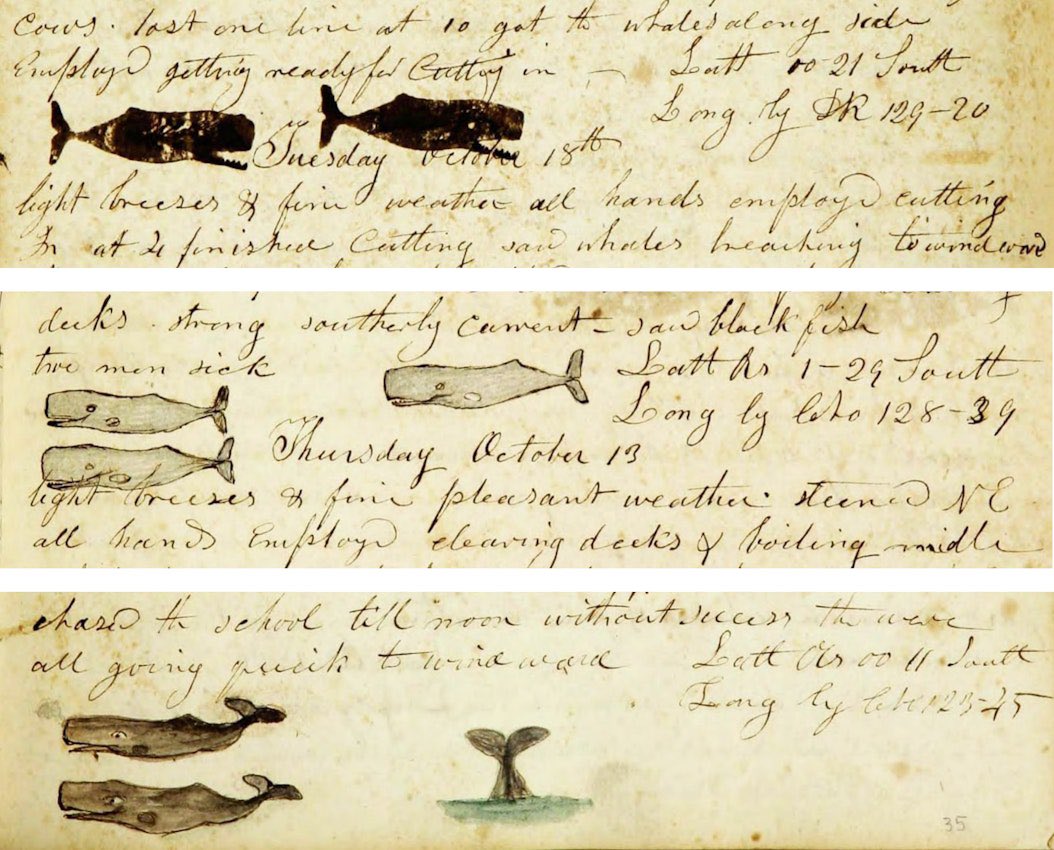 Cows. lost one line at 10 got th whales along side
Employd getting ready for Cutting in — Latt 00 21 South
Long by DR 129-20
Tuesday October 18th
light breezes & fine weather all hands employd cutting
In at 4 finished Cutting saw whales breaching to windward
decks. strong southerly current - saw black fish
two men sick Latt Obs 1-29 South
Long by Chro 128-39
Thursday October 13
light breezes & fine pleasant weather steered NE
all hands Employd clearing decks & boiling middle
chased th school till noon without success the were
all going quick to windward Latt Obs 00 11 South
Long by Chro 123-45
35